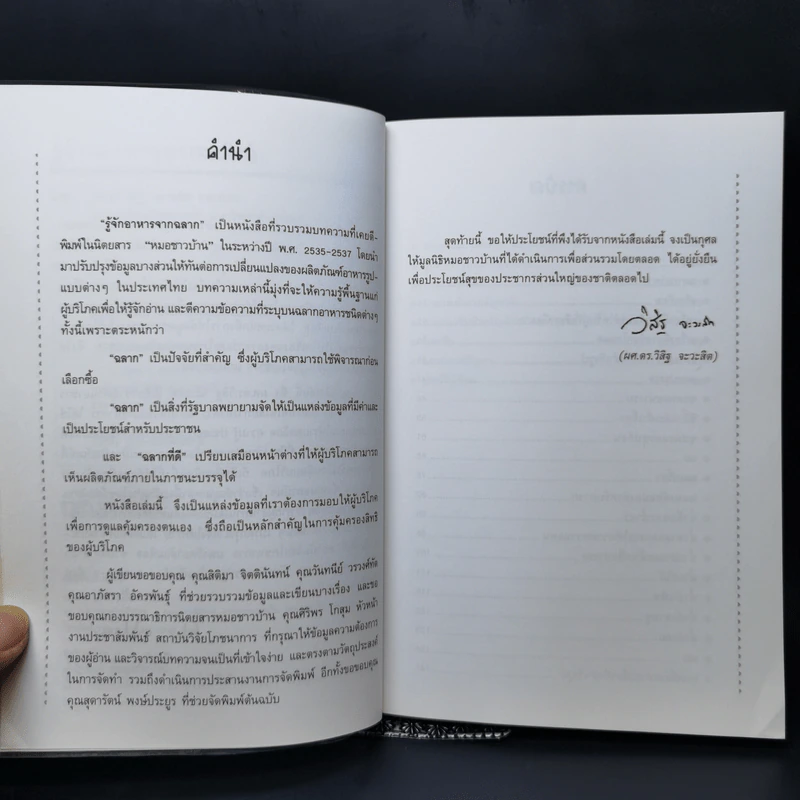 คำนำ
"รู้จักอาหารจากฉลาก" เป็นหนังสือที่รวบรวมบทความที่เคยตี-
พิมพ์ในนิตยสาร "หมอชาวบ้าน" ในระหว่างปี พ.ศ. 2535-2537 โดยนำ
มาปรับปรุงข้อมูลบางส่วนให้ทันต่อการเปลี่ยนแปลงของผลิตภัณฑ์อาหารรูป-
แบบต่างๆ ในประเทศไทย บทความเหล่านี้มุ่งที่จะให้ความรู้พื้นฐานแก่
ผู้บริโภคเพื่อให้รู้จักอ่าน และตีความข้อความที่ระบุบนฉลากอาหารชนิดต่างๆ
ทั้งนี้เพราะตระหนักว่า
"ฉลาก" เป็นปัจจัยที่สำคัญ ซึ่งผู้บริโภคสามารถใช้พิจารณาก่อน
เลือกซื้อ
"ฉลาก" เป็นสิ่งที่รัฐบาลพยายามจัดให้เป็นแหล่งข้อมูลที่มีค่าและ
เป็นประโยชน์สำหรับประชาชน
และ "ฉลากที่ดี" เปรียบเสมือนหน้าต่างที่ให้ผู้บริโภคสามารถ
เห็นผลิตภัณฑ์ภายในภาชนะบรรจุได้
หนังสือเล่มนี้ จึงเป็นแหล่งข้อมูลที่เราต้องการมอบให้ผู้บริโภค
เพื่อการดูแลคุ้มครองตนเอง ซึ่งถือเป็นหลักสำคัญในการคุ้มครองสิทธิ
ของผู้บริโภค
ผู้เขียนขอขอบคุณ คุณสิติมา จิตตินันทน์ คุณวันทนีย์ วรวงศ์ทัต
คุณอาภัสรา อัครพันธุ์ ที่ช่วยรวบรวมข้อมูลและเขียนบางเรื่อง และขอ
ขอบคุณกองบรรณาธิการนิตยสารหมอชาวบ้าน คุณศิริพร โกสุม หัวหน้า
งานประชาสัมพันธ์ สถาบันวิจัยโภชนาการ ที่กรุณาให้ข้อมูลความต้องการ
ของผู้อ่าน และวิจารณ์บทความจนเป็นที่เข้าใจง่าย และตรงตามวัตถุประสงค์
ในการจัดทำ รวมถึงดำเนินการประสานงานการจัดพิมพ์ อีกทั้งขอขอบคุณ
คุณสุดารัตน์ พงษ์ประยูร ที่ช่วยจัดพิมพ์ต้นฉบับ
สุดท้ายนี้ ขอให้ประโยชน์ที่พึงได้รับจากหนังสือเล่มนี้ จงเป็นกุศล
ให้มูลนิธิหมอชาวบ้านที่ได้ดำเนินการเพื่อส่วนรวมโดยตลอด ได้อยู่ยั่งยืน
เพื่อประโยชน์สุขของประชากรส่วนใหญ่ของชาติตลอดไป
วิสิฐ จะวะสิต
(ผศ.ดร.วิสิฐ จะวะสิต)